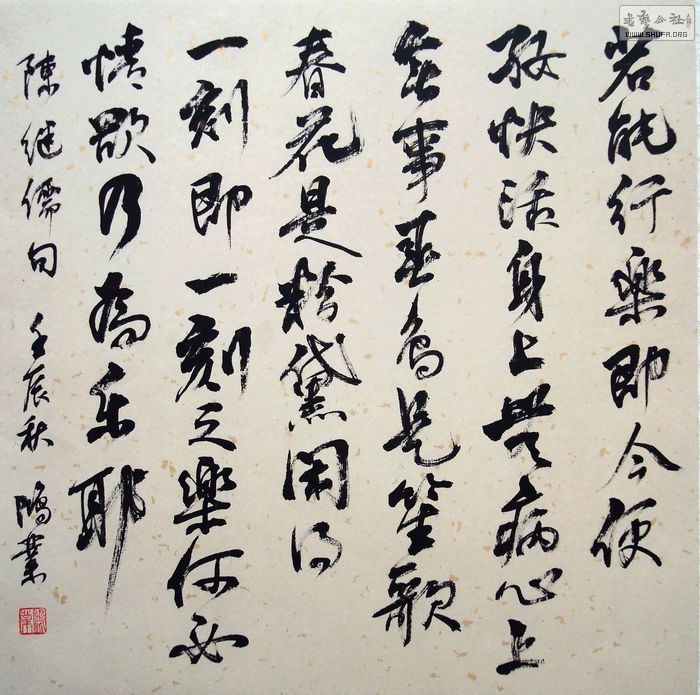 書藝公社
WWW.SHUFA.ORG
若能行樂即今便
好快活身上無病心上
無事春鳥是笙歌
春花是粉黛閑得
一刻即一刻之樂何必
情欲乃為乐耶
陳继儒句 壬辰秋 鴻業